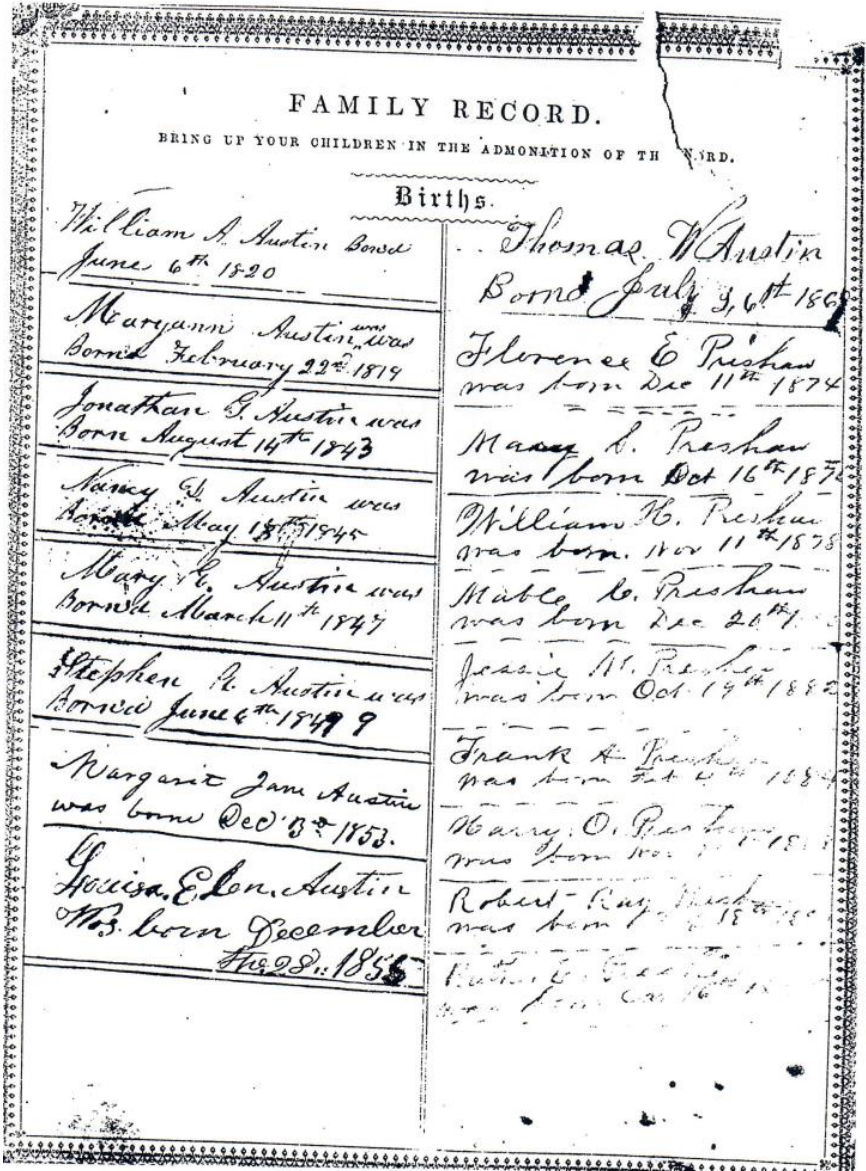 FAMILY RECORD.
BRING UP YOUR CHILDREN IN THE ADMONITION OF TH
Births.
William A. Austin Bornd
June 6th 1820
Maryann Austin was was
Bornd February 22nd 1819
Jonathan G. Austin was
Born August 14th 1843
Nancy D. Austin was
May 18th 1845
Mary E. Austin was
Born'd March 11th 1847
Stephen A. Austin was
Born'd June 6th 1849 9
Margarit Jane Austin
was borne Dec 3rd 1853.
Louisa. Elen. Austin
Was. born December
the 28.. 1855
Thomas W Austin
Born July
Florence E Prishaw
was born Dec 11th 1874
Mary S. Preshaw
was born Oct 16th 187
William H. Preshaw
was born. Nov 11th 1878
Mable C. Preshaw
was born Dec 20th
Jessie M. Preshaw
was born Oct 19th 1882
Frank A
was born Feb
Harry. O.
was born Nov
Robert Ray
was born 18th